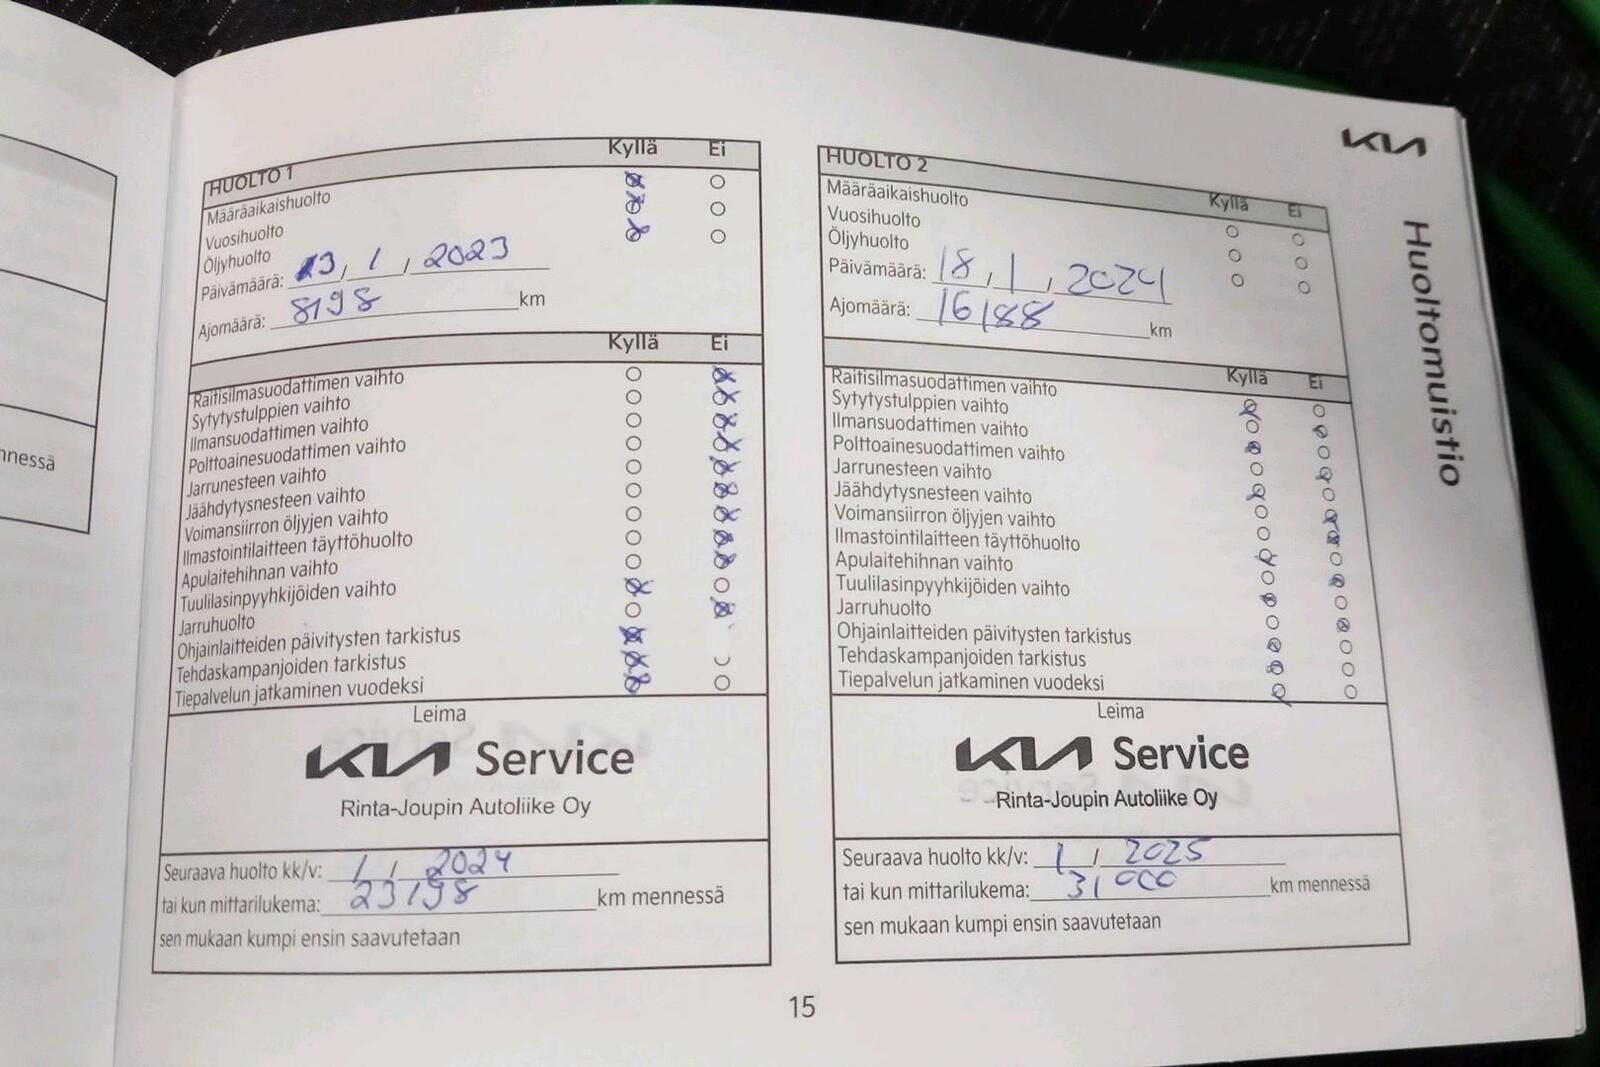 nnessä
KIA
Huoltomuistio
HUOLTO 1 Kyllä Ei
Määräaikaishuolto
Vuosihuolto
Öljyhuolto
Päivämäärä: 23, 1, 2023
Ajomäärä: 8198 km
Kyllä Ei
Raitisilmasuodattimen vaihto
Sytytystulppien vaihto
Ilmansuodattimen vaihto
Polttoainesuodattimen vaihto
Jarrunesteen vaihto
Jäähdytysnesteen vaihto
Voimansiirron öljyjen vaihto
Ilmastointilaitteen täyttöhuolto
Apulaitehihnan vaihto
Tuulilasinpyyhkijöiden vaihto
Jarruhuolto
Ohjainlaitteiden päivitysten tarkistus
Tehdaskampanjoiden tarkistus
Tiepalvelun jatkaminen vuodeksi
Leima
KIA Service
Rinta-Joupin Autoliike Oy
Seuraava huolto kk/v: 1 / 2024
tai kun mittarilukema: 23198 km mennessä
sen mukaan kumpi ensin saavutetaan
HUOLTO 2
Kyllä Ei
Määräaikaishuolto
Vuosihuolto
Öljyhuolto
Päivämäärä: 18, 1, 2024
Ajomäärä: 16188 km
Kyllä Ei
Raitisilmasuodattimen vaihto
Sytytystulppien vaihto
Ilmansuodattimen vaihto
Polttoainesuodattimen vaihto
Jarrunesteen vaihto
Jäähdytysnesteen vaihto
Voimansiirron öljyjen vaihto
Ilmastointilaitteen täyttöhuolto
Apulaitehihnan vaihto
Tuulilasinpyyhkijöiden vaihto
Jarruhuolto
Ohjainlaitteiden päivitysten tarkistus
Tehdaskampanjoiden tarkistus
Tiepalvelun jatkaminen vuodeksi
Leima
KIA Service
Rinta-Joupin Autoliike Oy
Seuraava huolto kk/v: 1 / 2025
tai kun mittarilukema: 31000 km mennessä
sen mukaan kumpi ensin saavutetaan
15